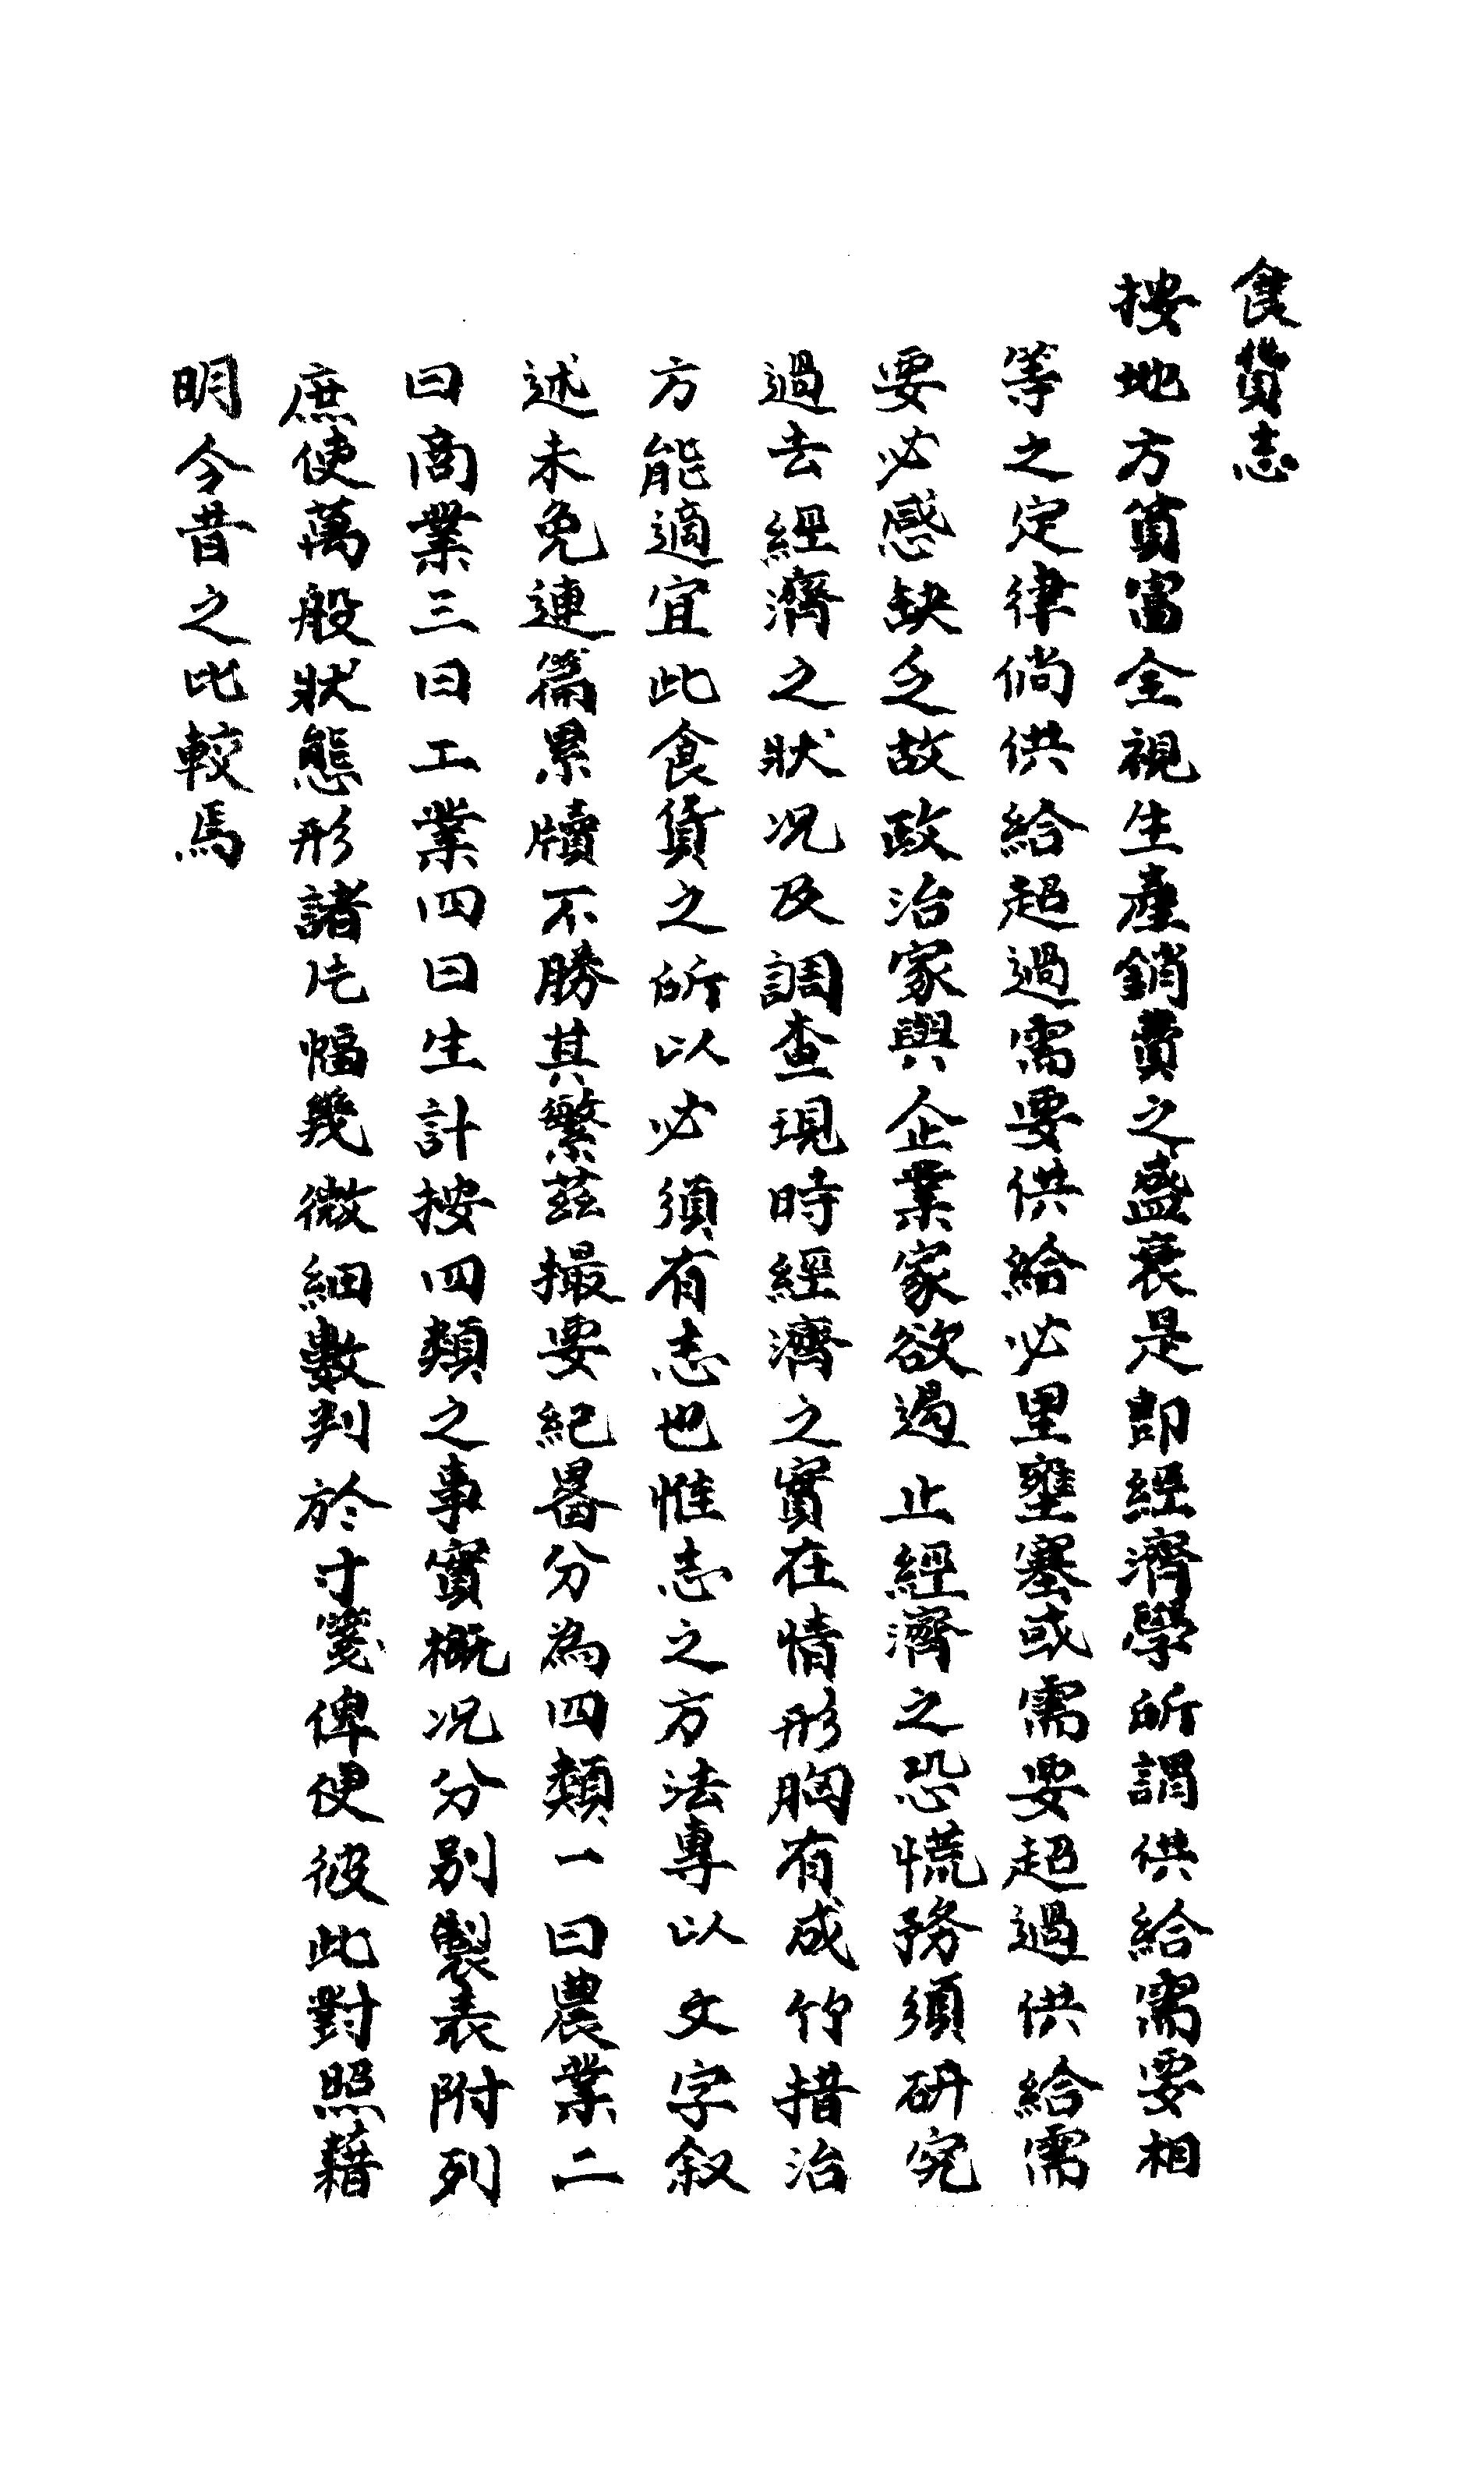 食貨志
按地方貧富全視生產銷費之盛衰是即經濟學所謂供給需要相
等之定律倘供給超過需要供給必里壅塞或需要超過供給需
要必感缺乏故政治家與企業家欲遏止經濟之恐慌務須研究
過去經濟之狀况及調查現時經濟之實在情形胸有成竹措治
方能適宜此食貨之所以必須有志也惟志之方法專以文字叙
述未免連篇累牘不勝其繁茲撮要紀畧分為四類一曰農業二
曰商業三曰工業四曰生計按四類之事實概况分別製表附列
庶使萬般狀態形諸片幅幾微細數判於寸箋俾便彼此對照藉
明今昔之比較焉